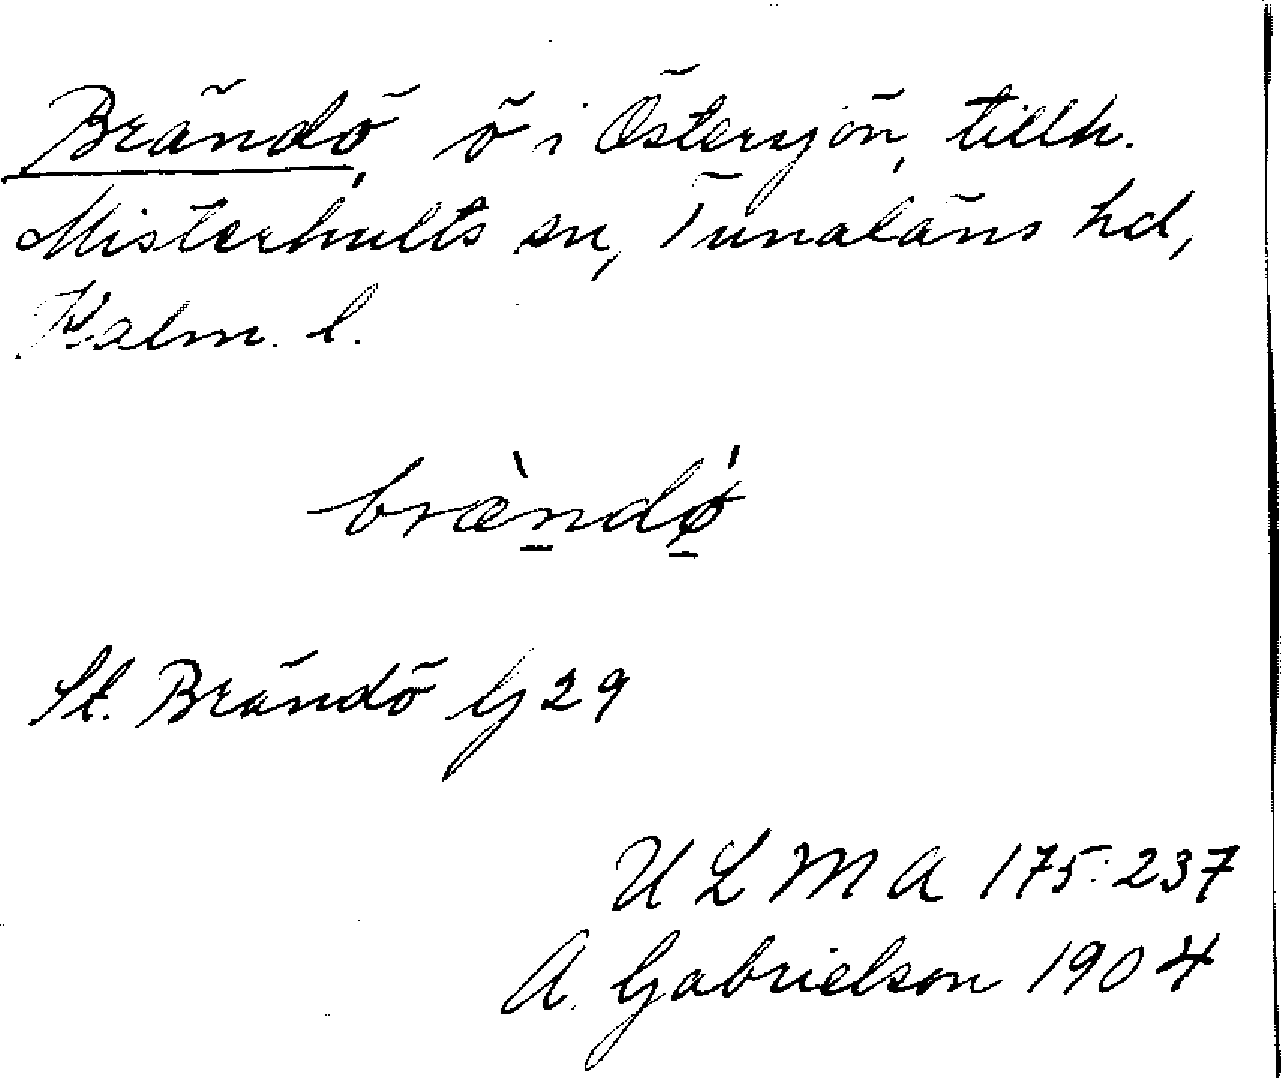 Brändö, ö i Östersjön, tillh.
Misterhults sn, Tunaläns hd,
Kalm. l.
bræ̀ndǿ
St. Brändö G 29
ULMA 175:237
A. Gabrielson 1904